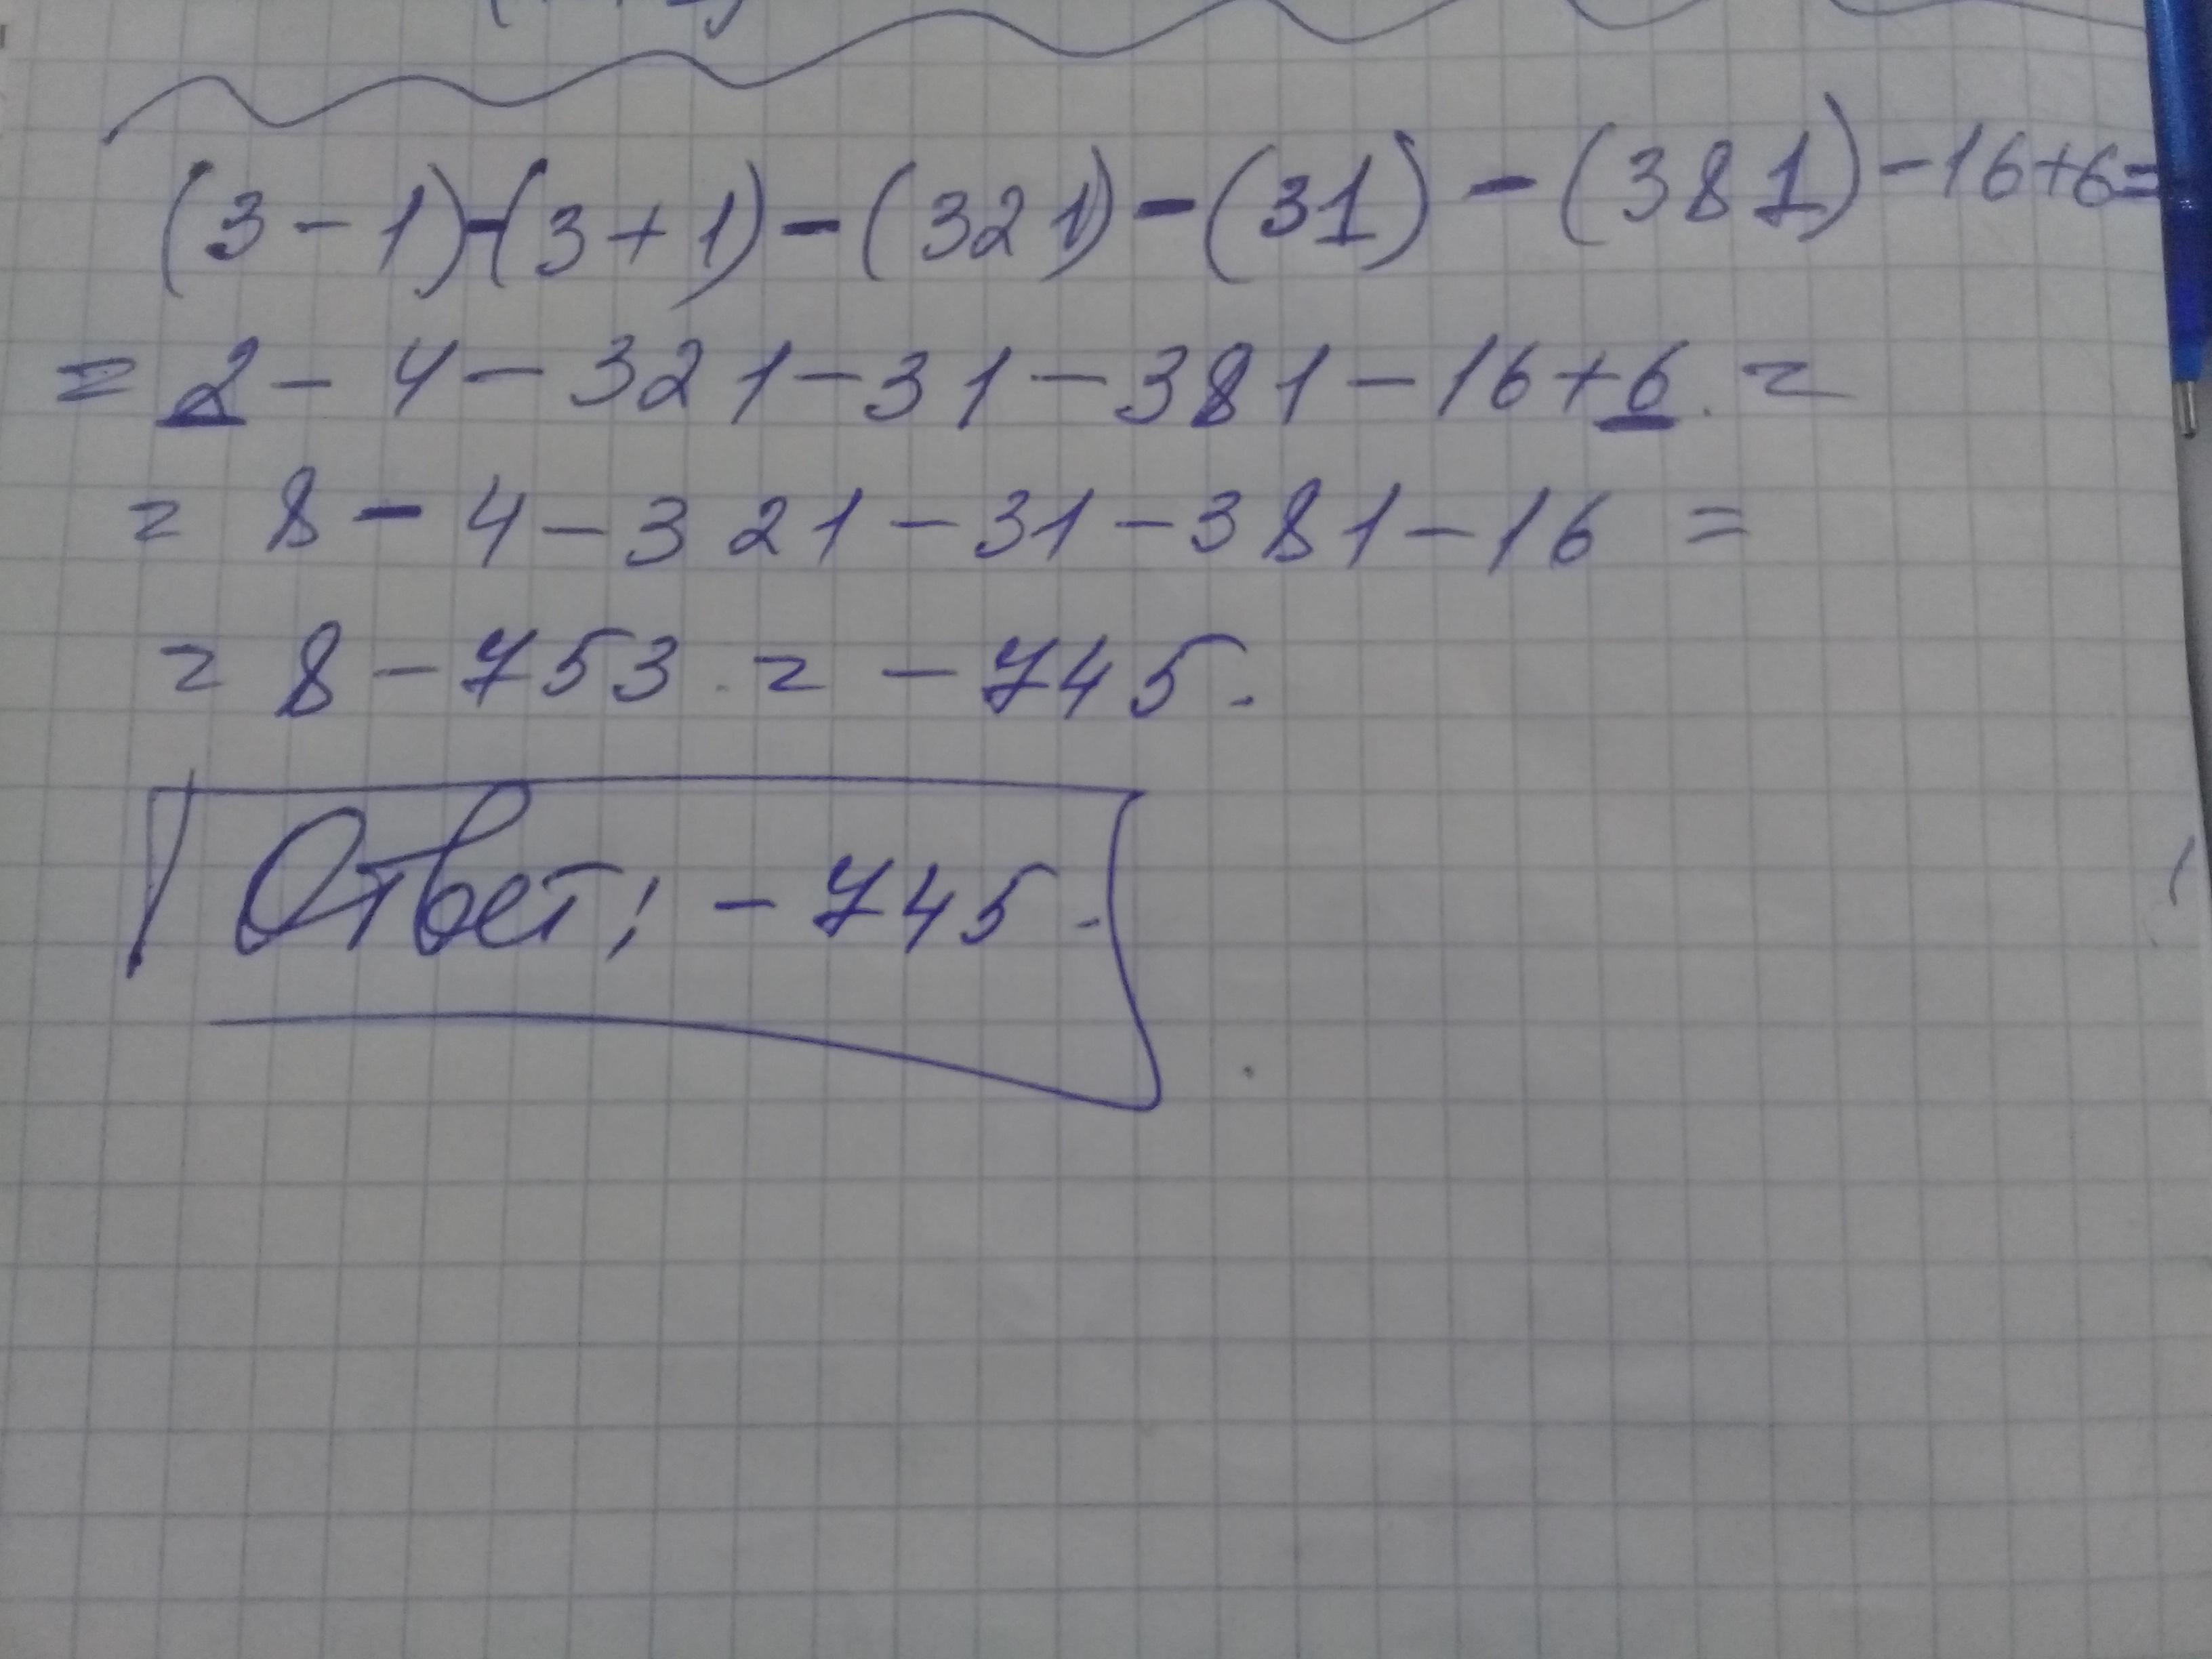 (3-1)-(3+1)-(321)-(31)-(381)-16+6=
=2-4-321-31-381-16+6.=
=8-4-321-31-381-16=
=8-753.=-745.
Ответ: -745.